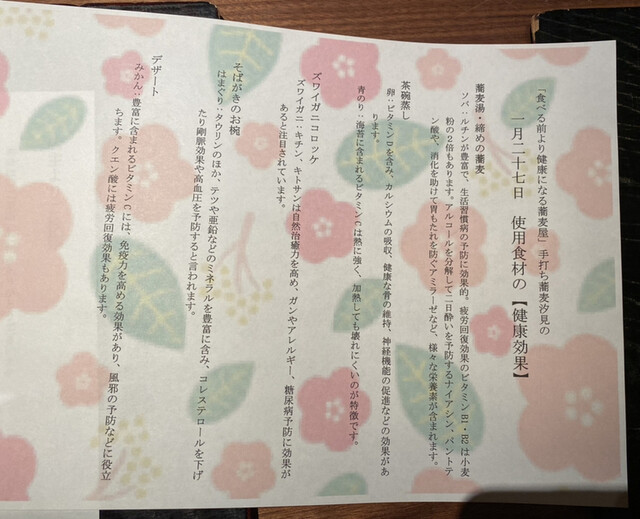 「食べる前より健康になる蕎麦屋」手打ち蕎麦汐見の
一月二十七日　使用食材の【健康効果】
蕎麦湯・締めの蕎麦
ソバ：ルチンが豊富で、生活習慣病の予防に効果的。疲労回復効果のビタミンB1・B2は小麦
粉の2倍もあります。アルコールを分解して二日酔いを予防するナイアシン、パントテ
ン酸や、消化を助けて胃もたれを防ぐアミラーゼなど、様々な栄養素が含まれます。
茶碗蒸し
卵：ビタミンDを含み、カルシウムの吸収、健康な骨の維持、神経機能の促進などの効果があ
ります。
青のり：海苔に含まれるビタミンCは熱に強く、加熱しても壊れにくいのが特徴です。
ズワイガニコロッケ
ズワイガニ：キチン、キトサンは自然治癒力を高め、ガンやアレルギー、糖尿病予防に効果が
あると注目されています。
そばがきのお椀
はまぐり：タウリンのほか、テツや亜鉛などのミネラルを豊富に含み、コレステロールを下げ
たり動脈効果や高血圧を予防すると言われます。
デザート
みかん：豊富に含まれるビタミンCには、免疫力を高める効果があり、風邪の予防などに役立
ちます。クエン酸には疲労回復効果もあります。